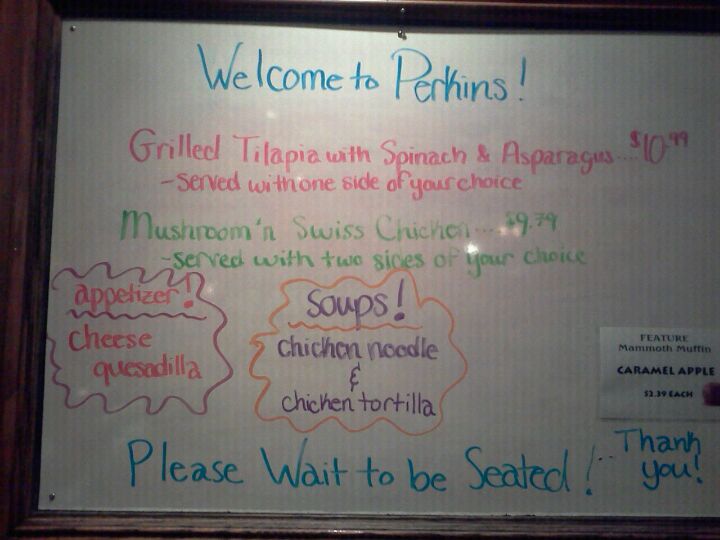 Welcome to Perkins!
Grilled Tilapia with Spinach & Asparagus....$10.99
-served with one side of your choice
Mushroom 'n Swiss Chicken....$9.79
-served with two sides of your choice
appetizer!
cheese
quesadilla
Soups!
chicken noodle
&
chicken tortilla
FEATURE
Mammoth Muffin
CARAMEL APPLE
$2.39 EACH
Please Wait to be Seated!..
Thank
you!